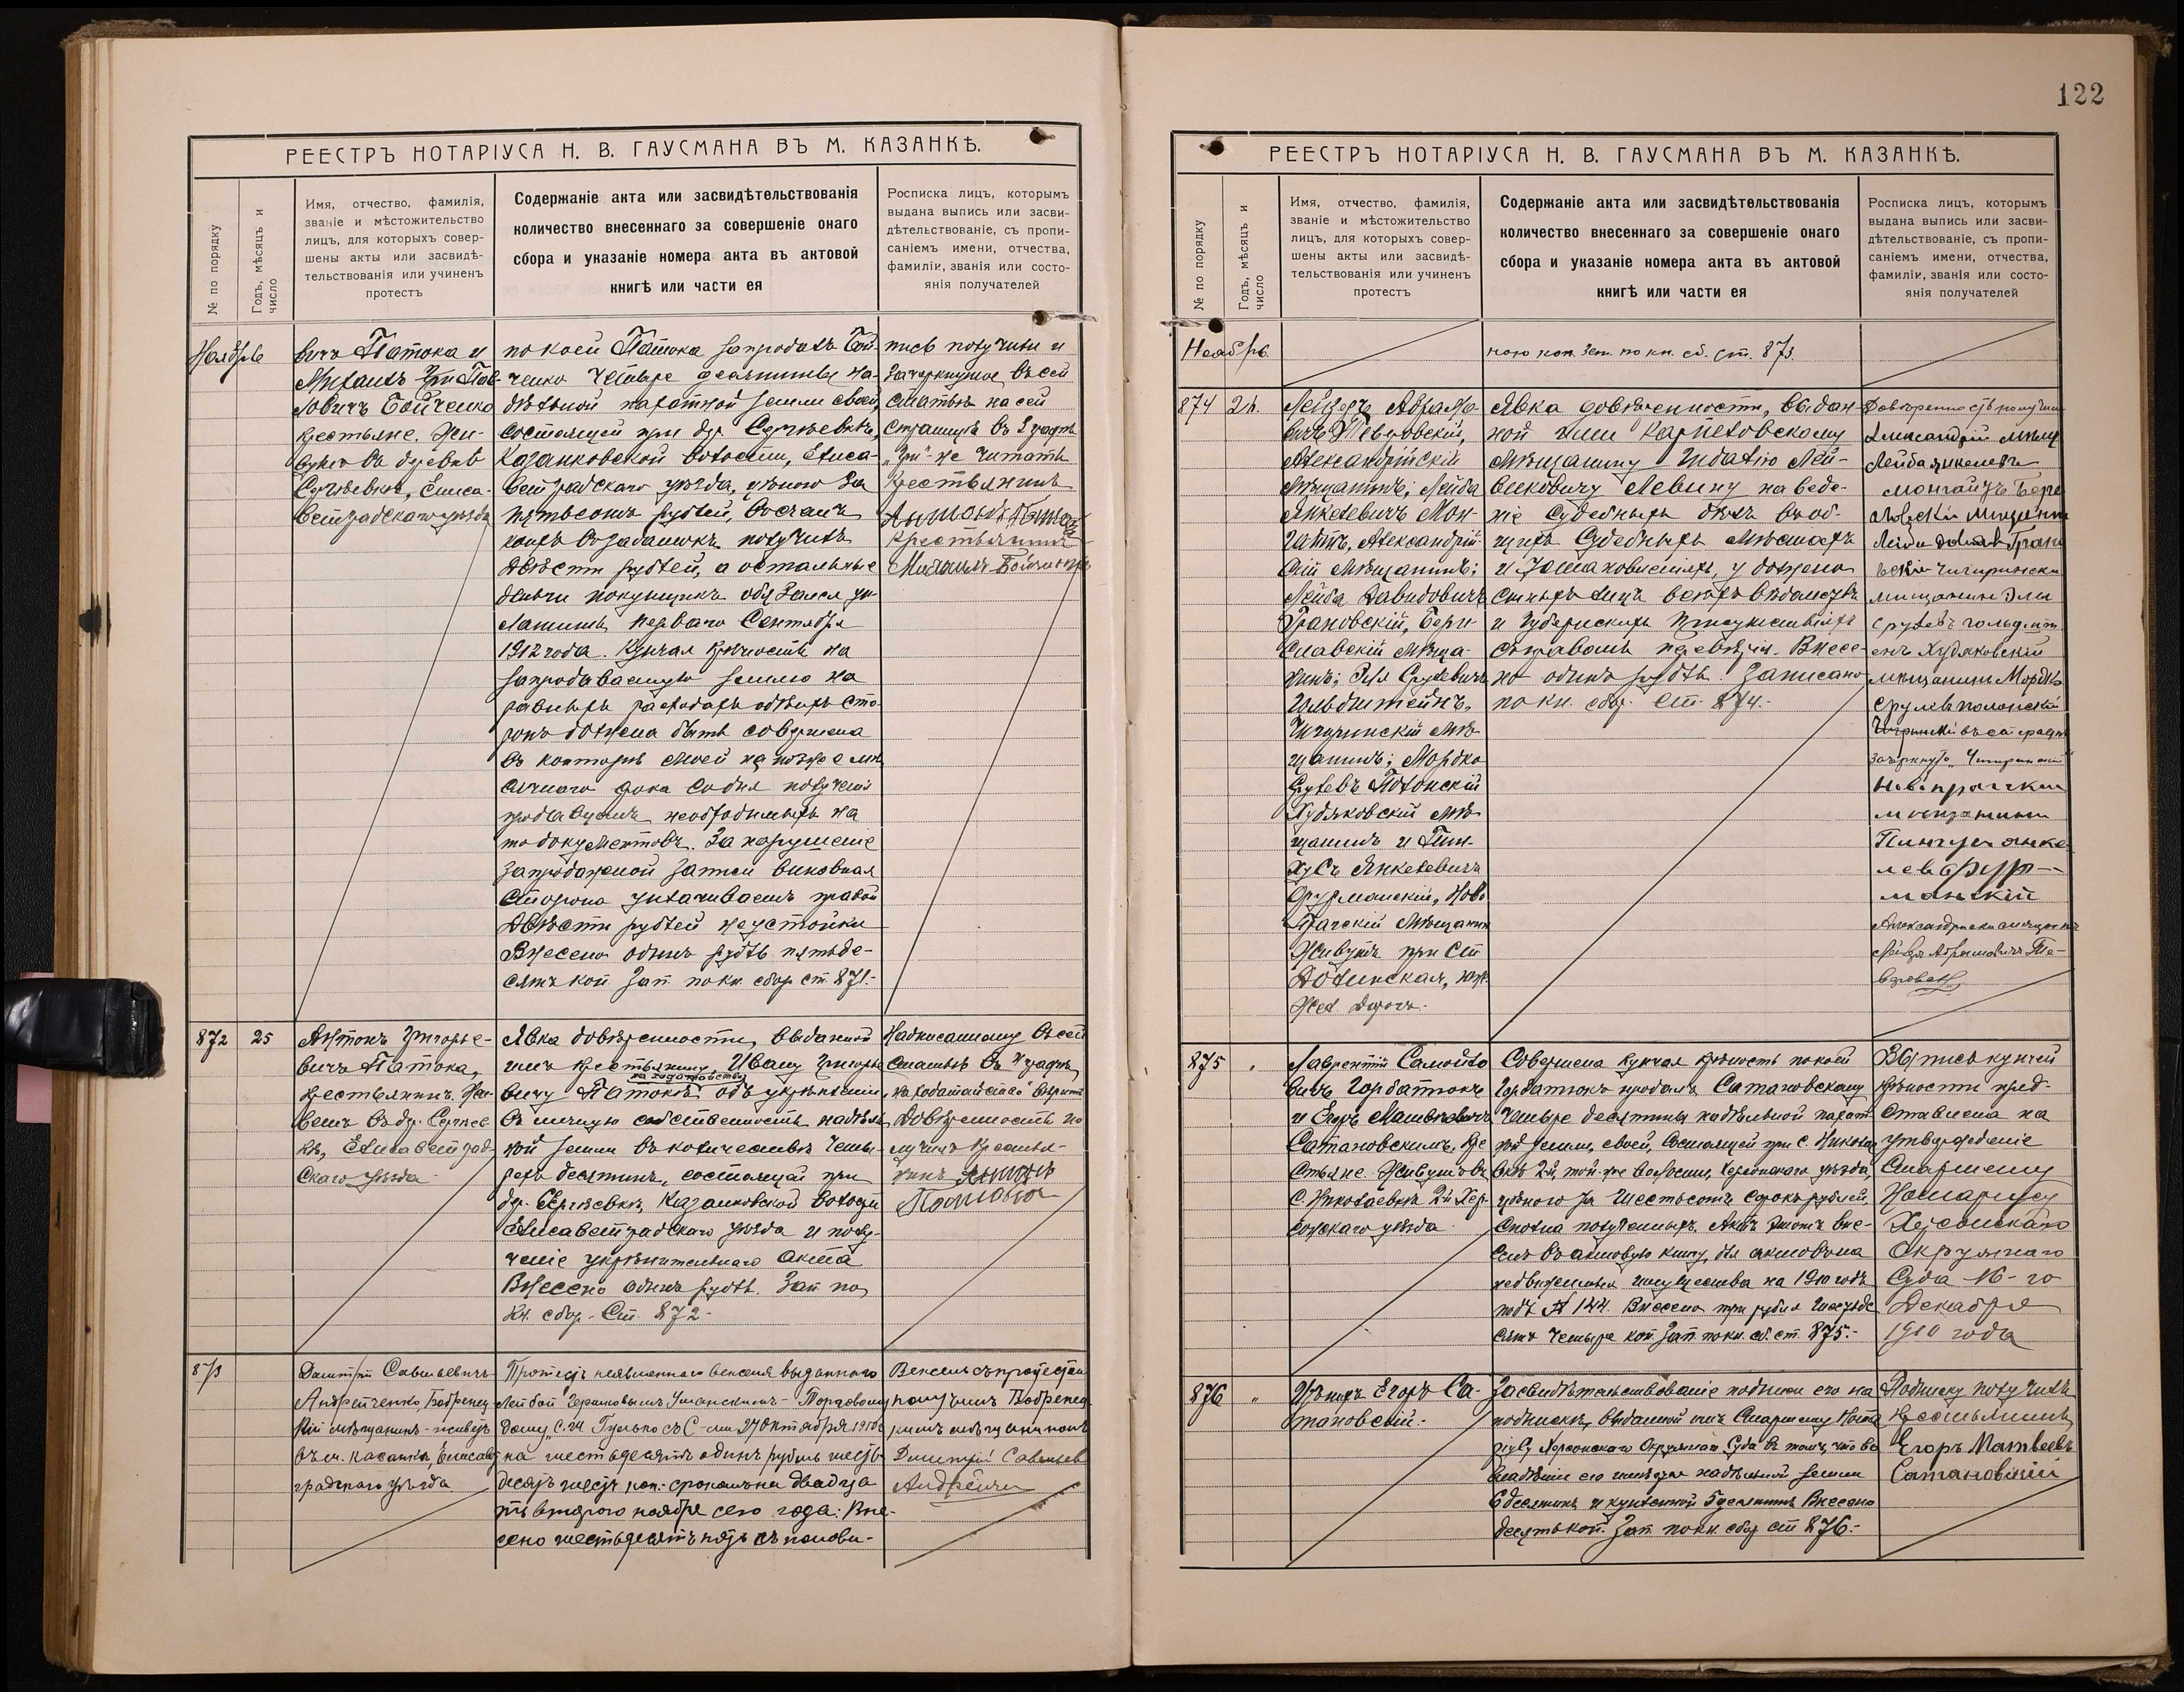 122
РЕЕСТРЪ НОТАРІУСА Н. В. ГАУСМАНА ВЪ М. КАЗАНКѢ.
№ по порядку
Годъ, мѣсяцъ и
число
Имя, отчество, фамилія,
званіе и мѣстожительство
лицъ, для которыхъ совер-
шены акты или засвидѣ-
тельствованія или учиненъ
протестъ
Содержаніе акта или засвидѣтельствованія
количество внесеннаго за совершеніе онаго
сбора и указаніе номера акта въ актовой
книгѣ или части ея
Росписка лицъ, которымъ
выдана выпись или засви-
дѣтельствованіе, съ пропи-
саніемъ имени, отчества,
фамиліи, званія или состо-
янія получателей
Ноябрь
вичъ Патока и
Михаилъ Пав-
ловичъ Бойченко
крестьяне. Жи-
вутъ въ деревнѣ
Сергѣевкѣ, Елиса-
ветградскаго уѣзда
по коей Патока запродалъ Бой-
ченко четыре десятины на-
дѣльной пахатной земли своей,
состоящей при дер. Сергѣевкѣ,
Казанковской волости, Елиса-
ветградскаго уѣзда, цѣною за
пятьсотъ рублей, въ счетъ
коихъ въ задатокъ получилъ
двѣсти рублей, а остальные
деньги покупщикъ обязался уп-
латить перваго Сентября
1912 года. Купчая крѣпость на
запродаваемую землю на
равныхъ расходахъ обѣихъ сто-
ронъ должна быть совершена
въ конторѣ моей не позже мѣ-
сячнаго срока со дня полученія
продавцомъ необходимыхъ на
то документовъ. За нарушеніе
запродажной записи виновная
сторона уплачиваетъ правой
двѣсти рублей неустойки
Внесено одинъ рубль пятьде-
сятъ коп Зап. по кн. сбор. ст. 871.-
пись получили и
зачеркнутое въ сей
статьѣ на сей
страницѣ въ 3 графѣ
„Гри" не читать
Крестьянинъ
Антонъ Патока
Крестьянинъ
Михаилъ Бойченко
872
25
Антонъ Григорье-
вичъ Патока,
крестьянинъ. Жи-
ветъ въ дер. Сергѣев-
кѣ, Елисаветград-
скаго уѣзда
Явка довѣренности, выданной
имъ крестьянину Ивану Григорье-
на ходатайство
вичу Патокѣ объ укрѣпленіи
въ личную собственность надѣль-
ной земли въ количествѣ четы-
рехъ десятинъ, состоящей при
дер. Сергѣевкѣ, Казанковской волости
Елисаветградскаго уѣзда и полу-
ченіе укрѣпительнаго акта
Внесено одинъ рубль. Зап по
кн. сбор. Ст. 872.-
Надписанному въ сей
статьѣ въ 4 графѣ
„на ходатайство" вѣрить
Довѣренность по-
лучилъ Крестья-
нинъ Антонъ
Патока
873
Дмитрій Савельевичъ
Андрейченко, Бобринец-
кій мѣщанинъ - живетъ
въ м. Казанкѣ, Елисавет-
градскаго уѣзда
Протестъ неявленнаго векселя выданнаго
Торговому
Дому 27 Октября 1910 г.
на шестьдесятъ одинъ рубль шесть-
десятъ шесть коп. срокомъ на двадца-
ть второго ноября сего года. Вне-
сено шестьдесятъ пять съ полови-
Вексель съ протестомъ
получилъ Бобринец-
мѣщанинъ
Дмитрій Савельев
Андрейчен
РЕЕСТРЪ НОТАРІУСА Н. В. ГАУСМАНА ВЪ М. КАЗАНКѢ.
№ по порядку
Годъ, мѣсяцъ и
число
Имя, отчество, фамилія,
званіе и мѣстожительство
лицъ, для которыхъ совер-
шены акты или засвидѣ-
тельствованія или учиненъ
протестъ
Содержаніе акта или засвидѣтельствованія
количество внесеннаго за совершеніе онаго
сбора и указаніе номера акта въ актовой
книгѣ или части ея
Росписка лицъ, которымъ
выдана выпись или засви-
дѣтельствованіе, съ пропи-
саніемъ имени, отчества,
фамиліи, званія или состо-
янія получателей
Ноябрь
ною коп. Зап. по кн. сб. ст. 873.
874
Лейзеръ Абрамо-
вичъ Теверовскій,
Александрійскій
мѣщанинъ; Лейба
Янкелевичъ Мон-
Александрій-
скій мѣщанинъ;
Лейба Давидовичъ
Грановскій, Бери-
славскій мѣща-
нинъ; Эля Срулевичъ
Гольдштейнъ,
Чигиринскій мѣ-
щанинъ; Мордко
Срулевъ Полонскій
Худяковскій мѣ-
щанинъ и Пин-
хусъ Янкелевичъ
Фурманскій, Ново-
Прагскій мѣщанинъ
Живутъ при ст
Долинская,
Жел. Дорогъ.
Явка довѣренности, выдан-
ной ими Карпеховскому
мѣщанину Лей-
бековичу Левину на веде-
ніе судебныхъ дѣлъ во об-
щихъ судебныхъ мѣстахъ
и у должно-
стныхъ лицъ всѣхъ вѣдомствъ
и губернскихъ присутствіяхъ
съ правомъ передовѣрія. Внесе-
но одинъ рубль Записано
по кн. сбор. ст. 874.-
Довѣренность получили
Александрій мѣщ
Лейба Янкелевъ
Бери-
славскій мещанинъ
Чигиринскій
мещанинъ Эли
Срулевъ Гольдшт
енъ Худяковскій
мѣщанинъ Мордко
Срулевъ Полонскій
зачеркнуто „Чигиринскій"
Новопрагскій
мѣщанинъ
Пинхусъ Янке-
левъ Фур-
манскій
Александрійскій мѣщанинъ
Лейзеръ Абрамовичъ Те-
веровскій
875
„
Лаврентій Самойло-
вичъ Горбатюкъ
и Егоръ Матвѣевичъ
Сатановскій, кре-
стьяне. Живутъ въ
с. Николаевкѣ 2й Хер-
сонскаго уѣзда
Совершена купчая крѣпость по коей
Горбатюкъ продалъ Сатановскому
четыре десятины надѣльной пахат-
ной земли, своей, состоящей при с. Никола-
евкѣ 2й, той-же волости, Херсонскаго уѣзда,
цѣною за шестьсотъ сорокъ рублей,
сполна полученныхъ. Актъ этотъ вне-
сенъ въ актовую книгу, для актовъ на
недвижимыя имущества на 1910 годъ
подъ № 144. Внесено три рубля шестьде-
сятъ четыре коп. Зап. по кн. сб. ст. 875.-
Выпись купчей
крѣпости пред-
ставлена на
утвержденіе
Старшему
Нотаріусу
Херсонскаго
Окружнаго
Суда 16-го
Декабря
1910 года
876
„
Егоръ Са-
тановскій.-
Засвидѣтельствованіе подписи его на
подпискѣ, выданной имъ Старшему Нота-
ріусу Херсонскаго Окружнаго Суда въ томъ, что во
владѣніи его имѣется надѣльной земли
6 десятинъ и купленной 5 десятинъ Внесено
десять коп. Зап по кн. сбор ст 876.-
Подписку получилъ
крестьянинъ
Егоръ Матвеевъ
Сатановскій